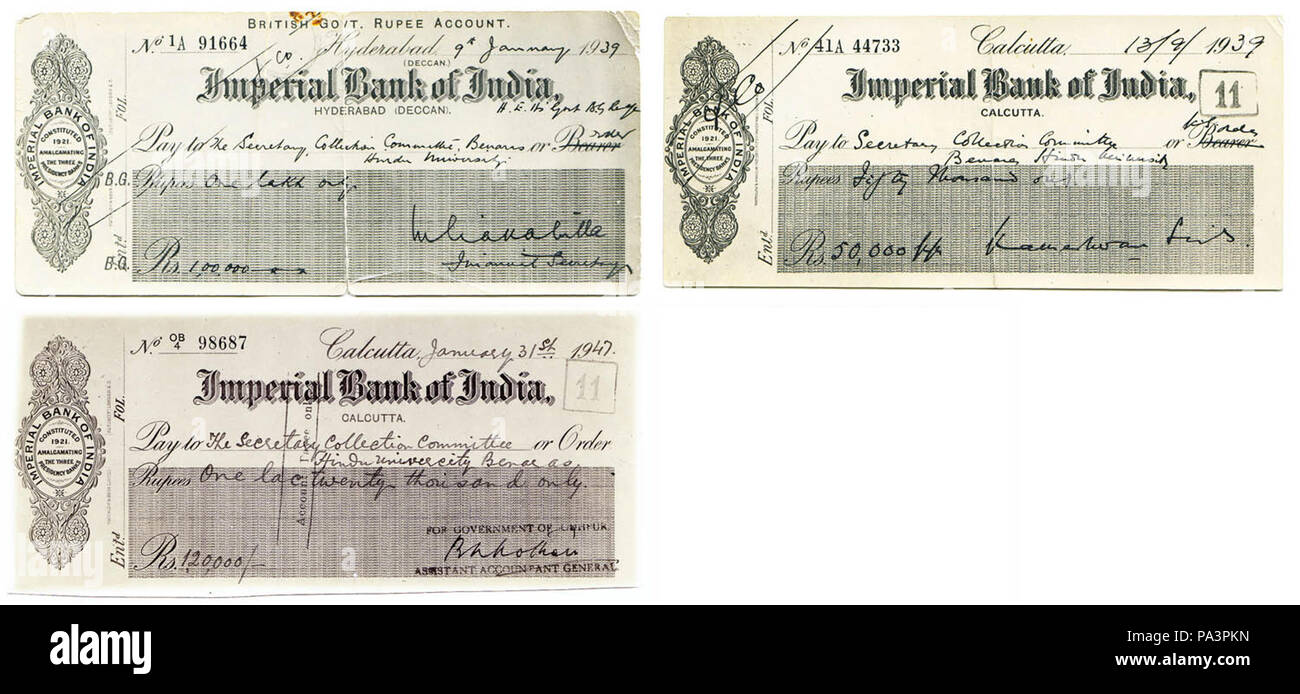 BRITISH GOVT. RUPEE ACCOUNT.
No 1A 91664
Hyderabad 9th January 1939
(DECCAN.)
& Co.
Imperial Bank of India,
HYDERABAD (DECCAN).
H. E. H's Govt B.G.
Pay to the Secretary, Collection Committee, Benares or Bearer order
Hindu University.
B.G. Rupees One lakh only
B.G. Rs. 1,00,000
Secretary
FOL.
Ent'd
IMPERIAL BANK OF INDIA
CONSTITUTED
1921.
AMALGAMATING
THE THREE
PRESIDENCY BANKS
No 41A 44733
Calcutta, 13/9/1939
& Co
Imperial Bank of India,
11
CALCUTTA.
Pay to Secretary Collection Committee or Bearer order
Benares Hindu University
Rupees Fifty Thousand only
Rs. 50,000
Kameshwar Singh
FOL.
Ent'd
IMPERIAL BANK OF INDIA
CONSTITUTED
1921.
AMALGAMATING
THE THREE
PRESIDENCY BANKS
No. OB/4 98687
Calcutta, January 31st 1947.
Imperial Bank of India,
11
CALCUTTA.
Pay to The Secretary Collection Committee or Order
Hindu Univercity Benaras
Rupees One lac twenty thousand only.
Account Payee only
FOR GOVERNMENT OF
Rs. 120,000/-
ASSISTANT ACCOUNTANT GENERAL
FOL.
Ent'd
IMPERIAL BANK OF INDIA
CONSTITUTED
1921.
AMALGAMATING
THE THREE
PRESIDENCY BANKS
alamy
Image ID: PA3PKN
www.alamy.com